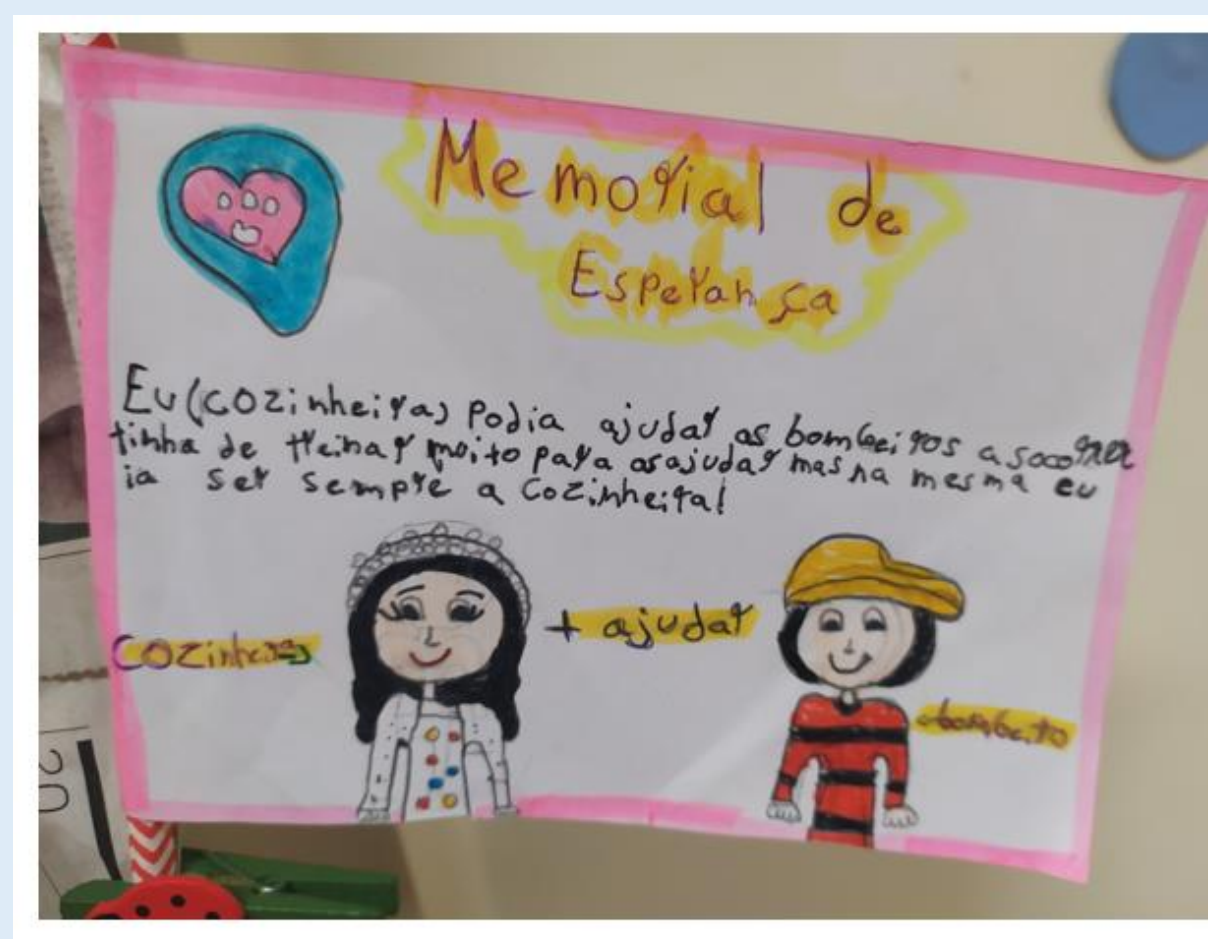 Memorial de
Esperança
Eu (cozinheira) Podia ajudar os bombeiros a socorrer
tinha de treinar moito para os ajudar mas na mesma eu
ia ser sempre a cozinheira!
cozinheira
+ ajudar
bombeiro
20